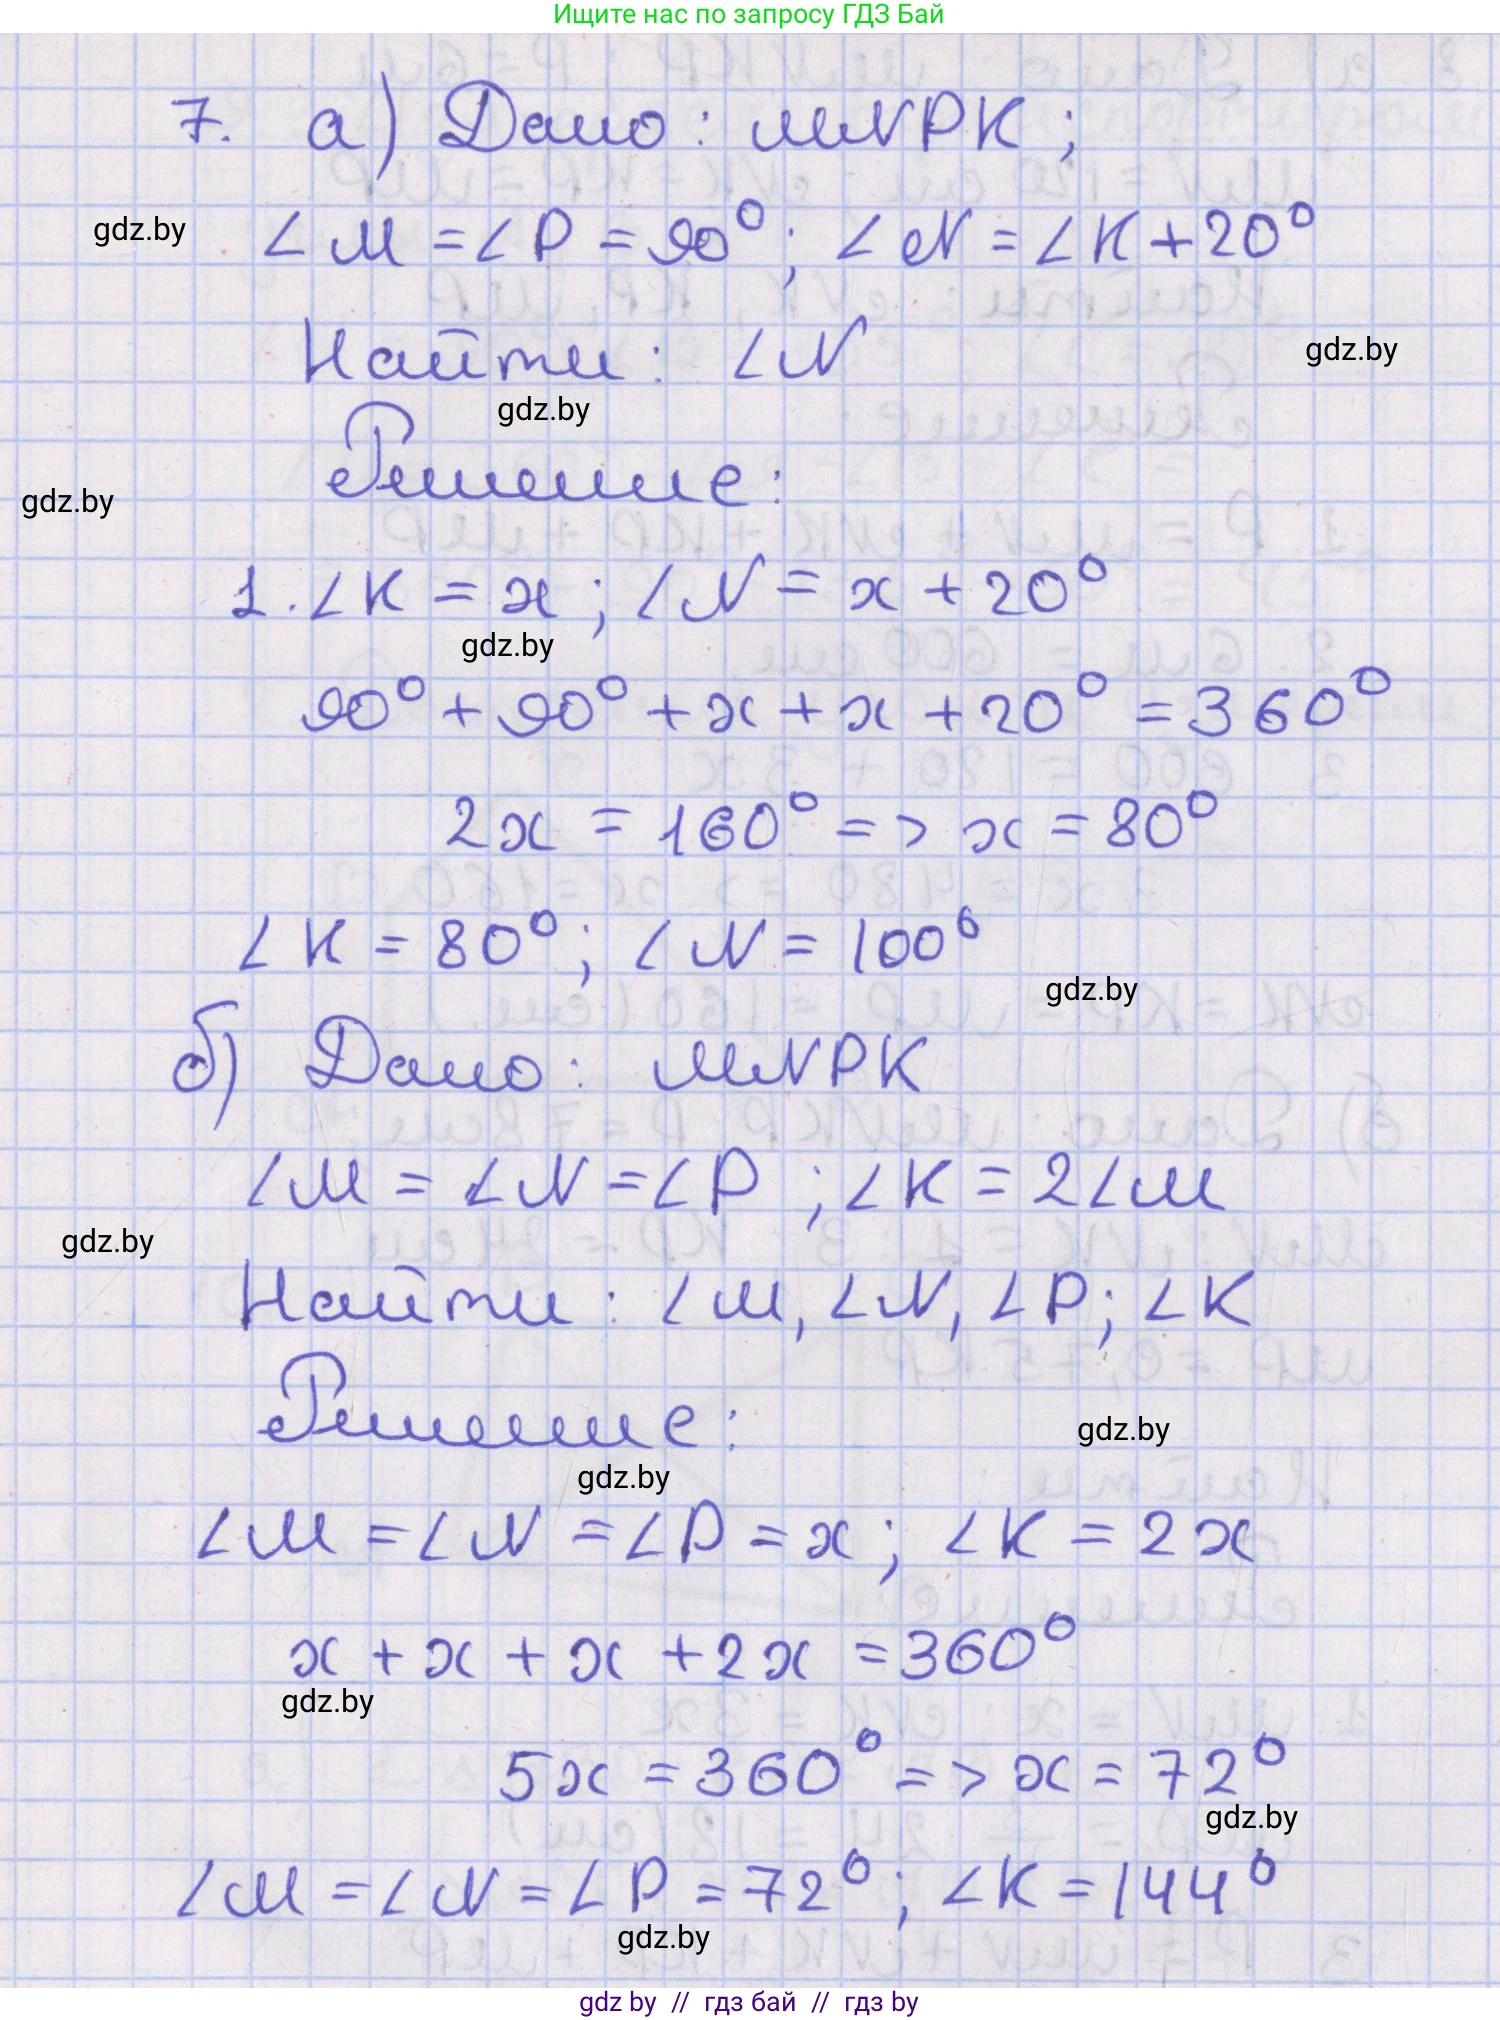 Ищите нас по запросу ГДЗ Бай
7. а) Дано: MNPK;
gdz.by
∠M = ∠P = 90°; ∠N = ∠K + 20°
Найти: ∠N
gdz.by
gdz.by
Решение:
gdz.by
1. ∠K = x; ∠N = x + 20°
gdz.by
90° + 90° + x + x + 20° = 360°
2x = 160° => x = 80°
∠K = 80°; ∠N = 100°
gdz.by
б) Дано: MNPK
∠M = ∠N = ∠P; ∠K = 2∠M
gdz.by
Найти: ∠M, ∠N, ∠P; ∠K
Решение:
gdz.by
gdz.by
∠M = ∠N = ∠P = x; ∠K = 2x
x + x + x + 2x = 360°
gdz.by
5x = 360° => x = 72°
gdz.by
∠M = ∠N = ∠P = 72°; ∠K = 144°
gdz.by
gdz by // гдз бай // гдз by